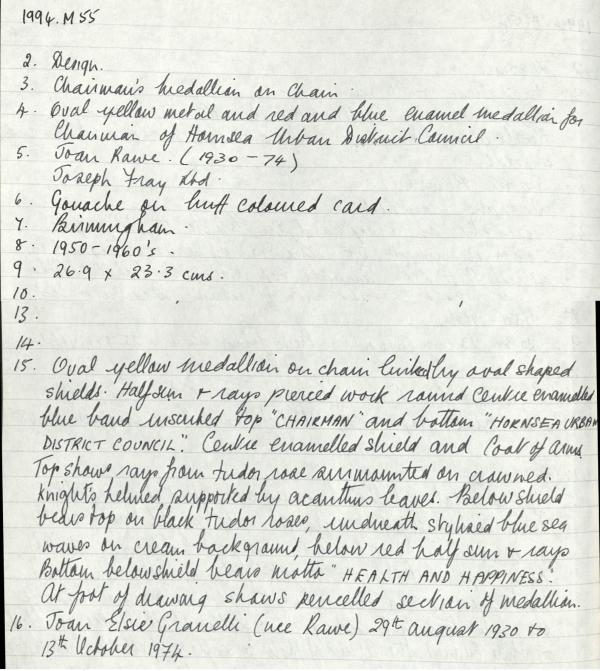 1994. M 55
2. Design.
3. Chairman's medallion on chain.
4. Oval yellow metal and red and blue enamel medallion for
Chairman of Hornsea Urban District Council.
5. Joan Rawe. (1930-74)
Joseph Fray Ltd.
6. Gouache on buff coloured card.
7. Birmingham.
8. 1950-1960's.
9. 26.9 x 23.3 cms.
10.
13.
14.
15. Oval yellow medallion on chain linked by oval shaped
shields. Half sun + rays pierced work round centre enamelled
blue band inscribed top "CHAIRMAN" and bottom "HORNSEA URBAN
DISTRICT COUNCIL". Centre enamelled shield and Coat of Arms.
Top shows rays from tudor rose surmounted on crowned.
Knights helmed supported by acanthus leaves. Below shield
bears top on black tudor roses, underneath stylized blue sea
waves on cream background, below red half sun + rays
Bottom below shield bears motto "HEALTH AND HAPPINESS".
At foot of drawing shows pencilled section of medallion.
16. Joan Elsie Granelli (nee Rawe) 29th August 1930 to
13th October 1974.